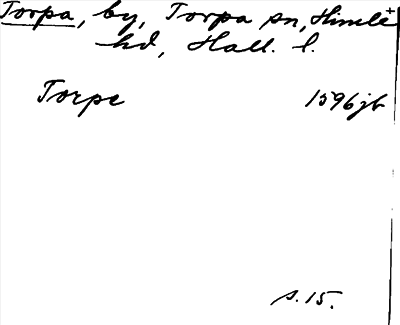 Torpa, by, Torpa sn, Himle+
hd, Hall. l.
Torpe 1596jb
s. 15.